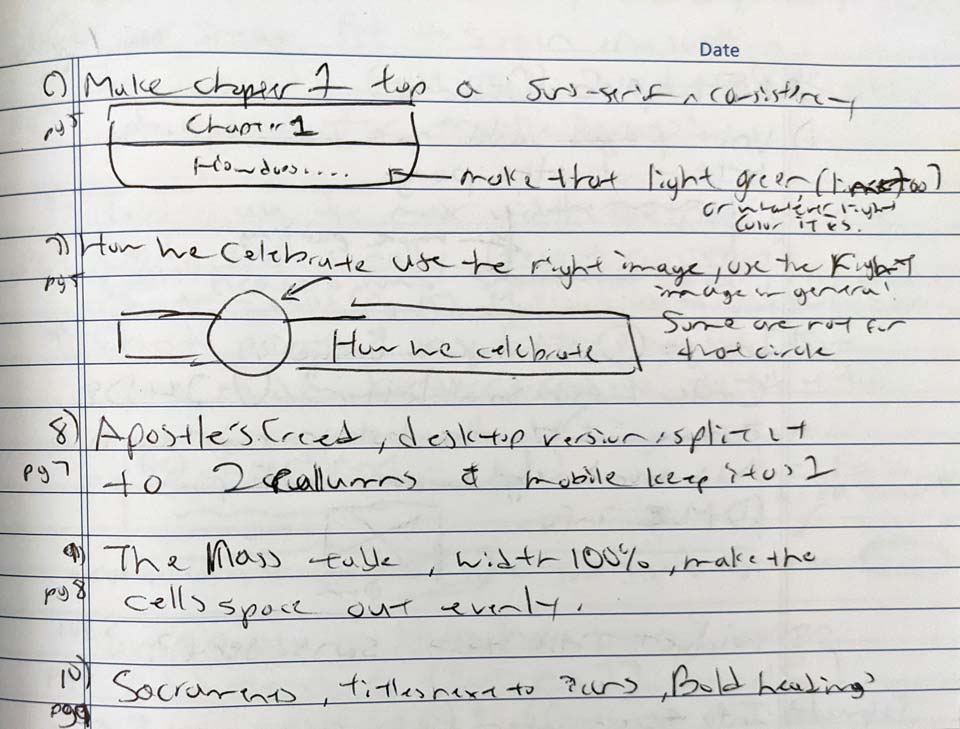 Date
6) Make chapter 1 top a sans-serif, consistency
pg 5
Chapter 1
How does....
make that light green,
or whatever light
color it is.
7) How we Celebrate use the right image, use the right
pg 5
image in general!
Some are not for
that circle
How we celebrate
8) Apostle's Creed, desktop version, split it
pg 7
to 2 collumns & mobile keep it as 1
9) The Mass table, width 100%, make the
pg 8
cells space out evenly.
10) Sacraments, titles next to icons, Bold headings
pg 9